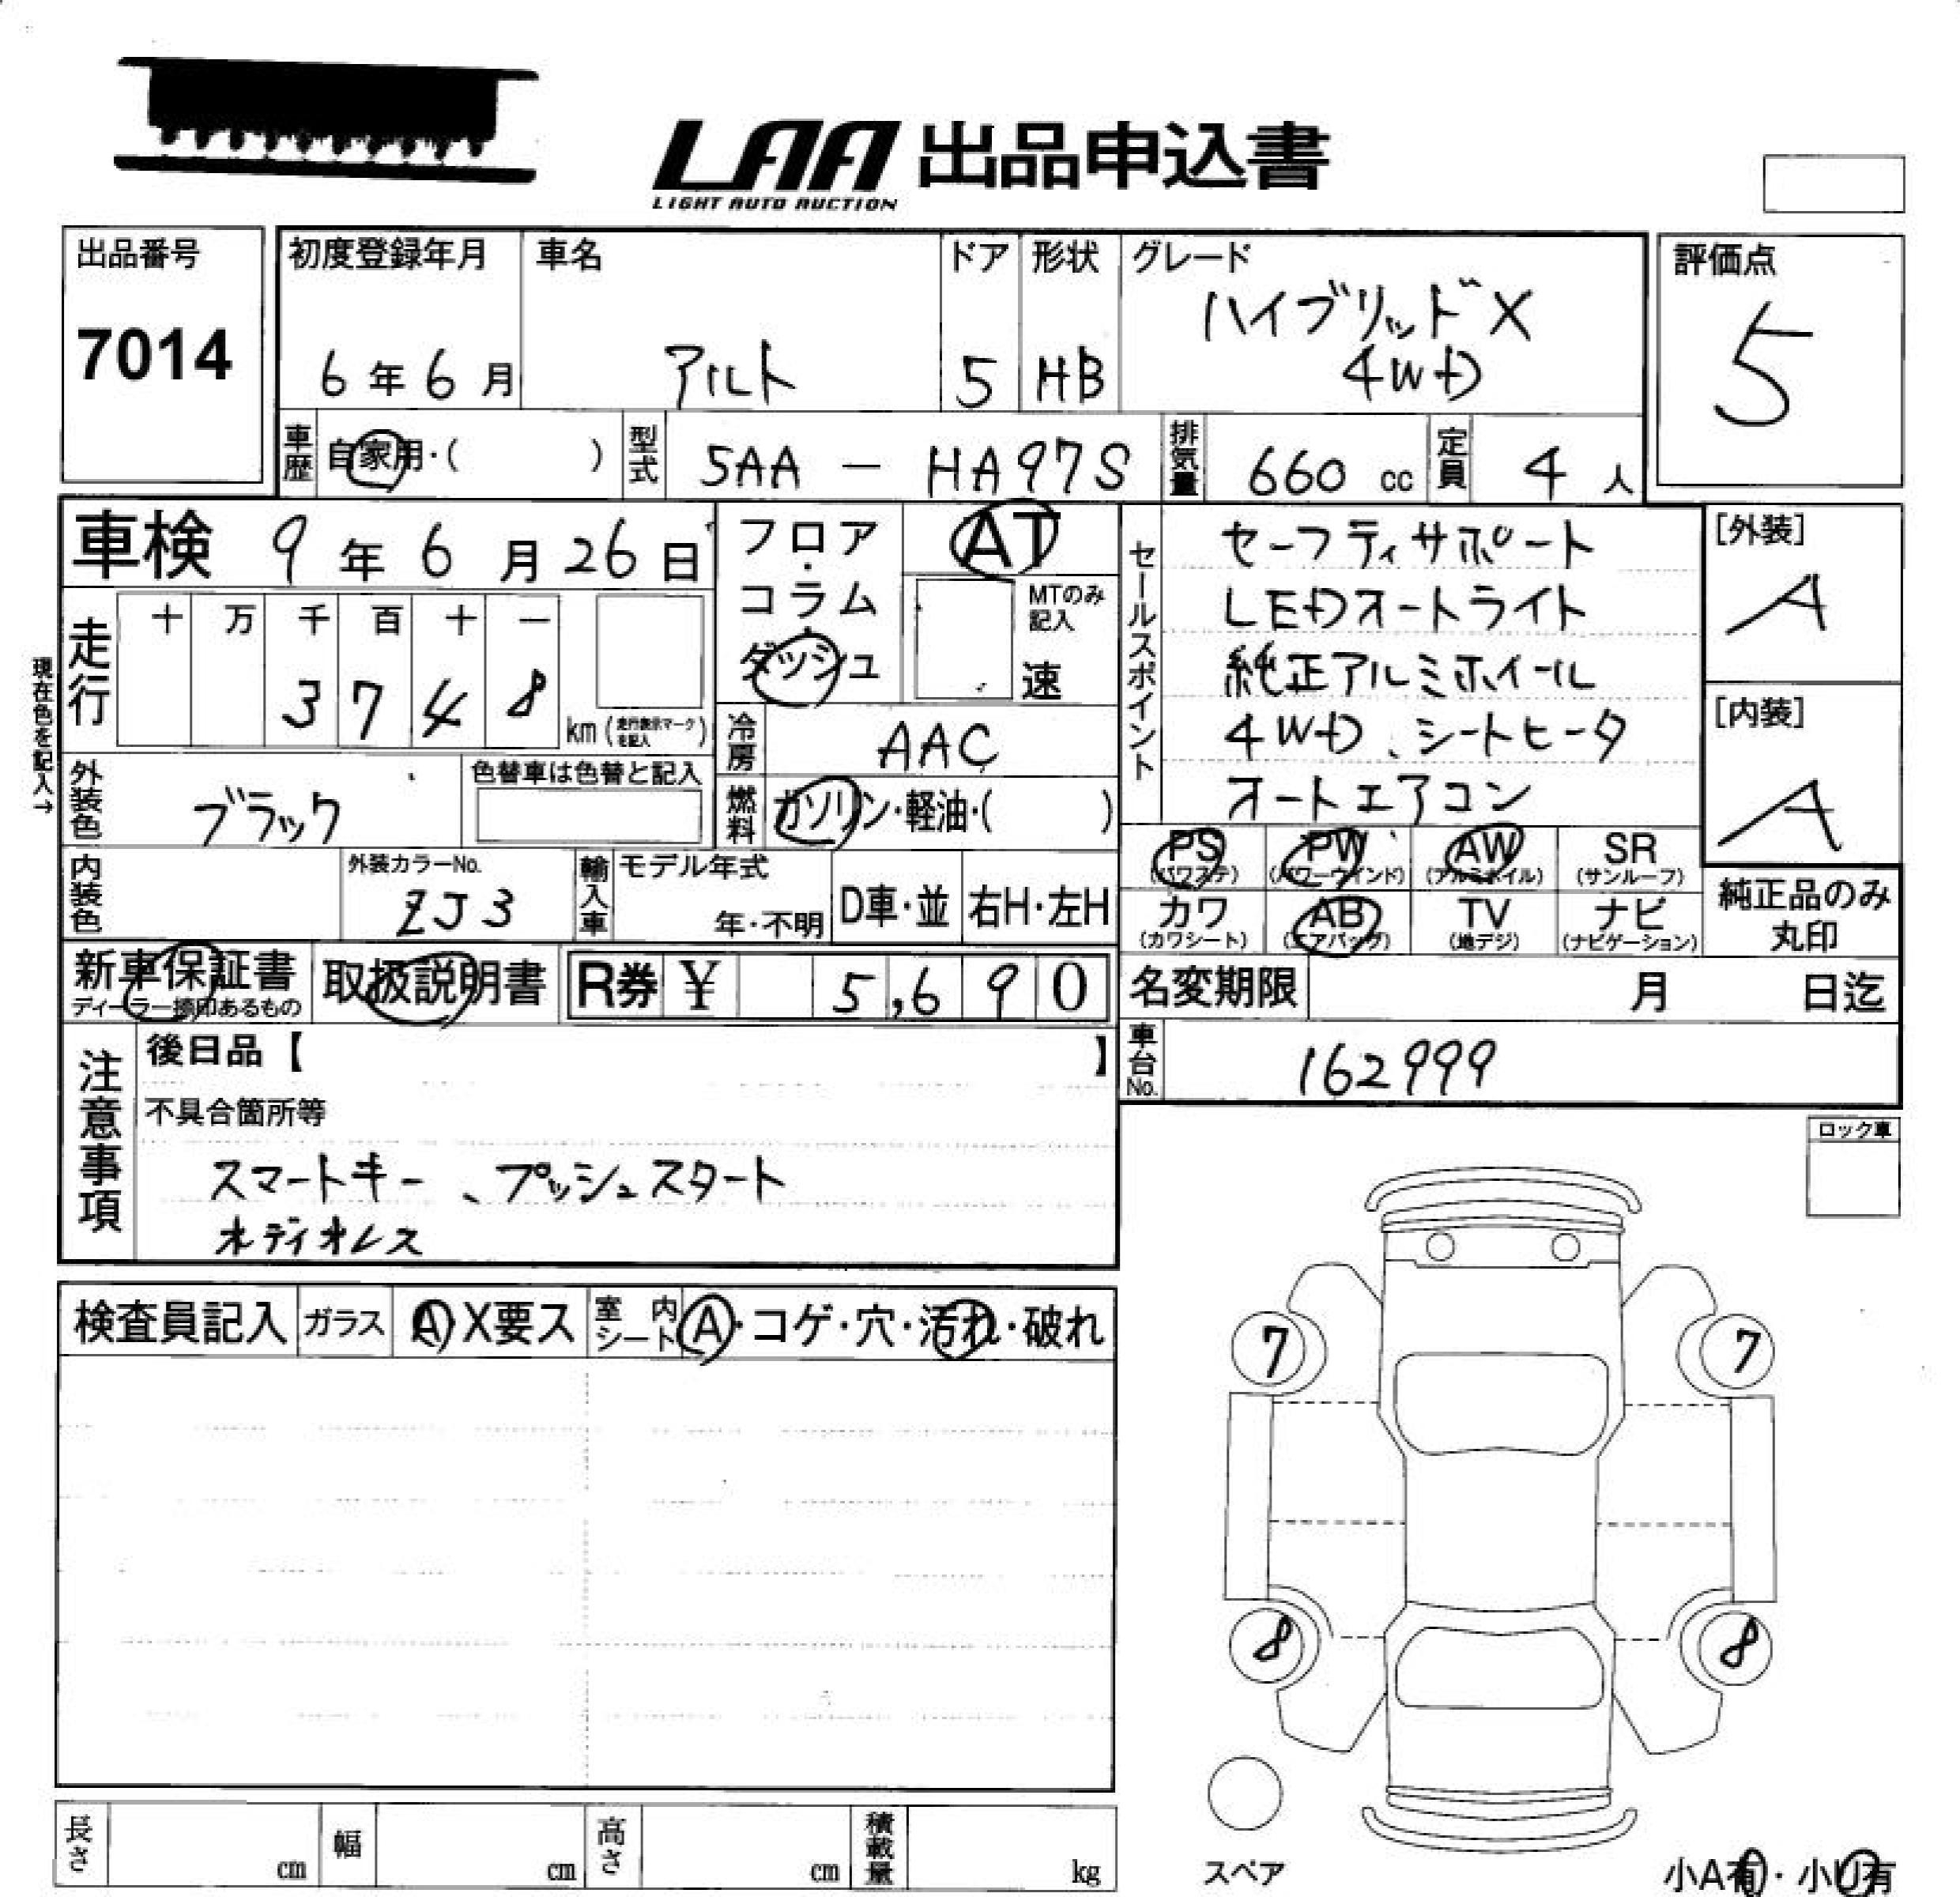 LAA 出品申込書
LIGHT AUTO AUCTION
出品番号
7014
初度登録年月
6年6月
車名
アルト
ドア
5
形状
HB
グレード
ハイブリッドX
4WD
評価点
5
車歴
自家用・( )
型式
5AA — HA97S
排気量
660 cc
定員
4 人
車検 9年6月26日
フロア・コラム・ダッシュ
AT
MTのみ記入
速
現在色を記入→
走行
十 万 千 百 十 一
3 7 4 8
km (走行表示マークを記入)
冷房
AAC
燃料
ガソリン・軽油・( )
外装色
ブラック
色替車は色替と記入
内装色
外装カラーNo.
ZJ3
輸入車
モデル年式
年・不明
D車・並
右H・左H
セールスポイント
セーフティサポート
LEDオートライト
純正アルミホイール
4WD、シートヒータ
オートエアコン
[外装]
A
[内装]
A
PS (パワステ)
PW (パワーウインド)
AW (アルミホイル)
SR (サンルーフ)
カワ (カワシート)
AB (エアバッグ)
TV (地デジ)
ナビ (ナビゲーション)
純正品のみ
丸印
新車保証書
ディーラー捺印あるもの
取扱説明書
R券 ¥ 5,690
名変期限 月 日迄
車台No.
162999
注意事項
後日品【 】
不具合箇所等
スマートキー、プッシュスタート
オディオレス
ロック車
検査員記入
ガラス
A X要ス
室内シート
A・コゲ・穴・汚れ・破れ
7
7
8
8
スペア
小A有・小U有
長さ cm
幅 cm
高さ cm
積載量 kg